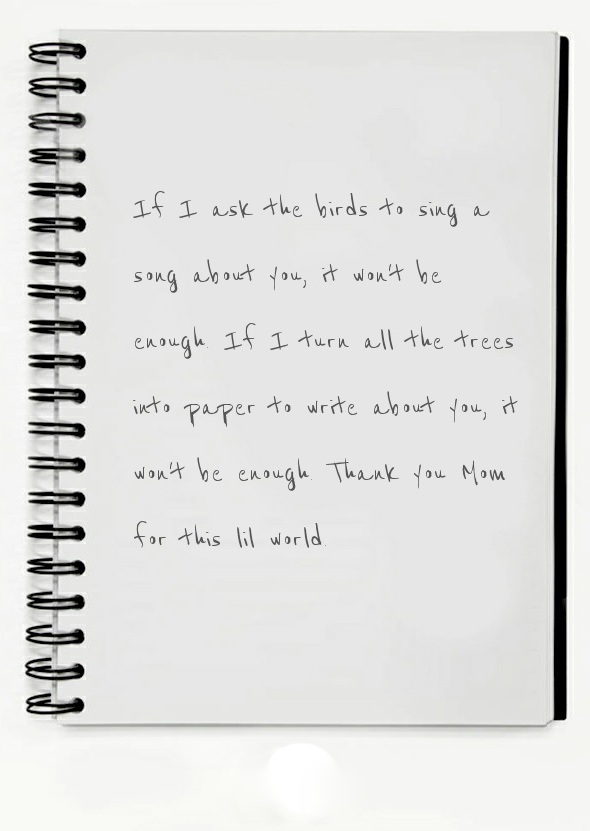 If I ask the birds to sing a
song about you, it won't be
enough. If I turn all the trees
into paper to write about you, it
won't be enough. Thank you Mom
for this lil world.